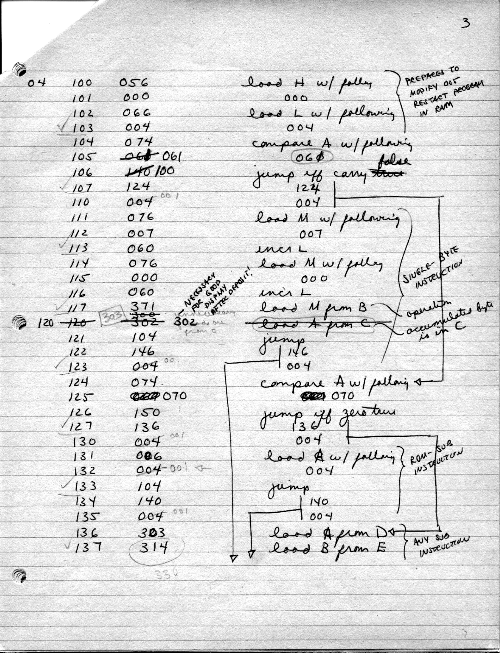 3
04 100 056 load H w/ follg
101 000 000
102 066 load L w/ following
103 004 004
104 074 compare A w/ following
105 061 060
106 100 jump iff carry false
107 124 124
110 004 001 004
111 076 load M w/ following
112 007 007
113 060 incr L
114 076 load M w/ follg
115 000 000
116 060 incr L
117 371 load M from B
120 120 303 302 302 load A from C
121 104 jump
122 146 146
123 004 00 004
124 074 compare A w/ follwing
125 070 070
126 150 jump iff zero true
127 136 136
130 004 001 004
131 006 load A w/ follwing
132 004 001 004
133 104 jump
134 140 140
135 004 001 004
136 303 load A from D
137 314 load B from E
330
PREPARES TO
MODIFY 005
RESTART PROGRAM
IN RAM
SINGLE-BYTE
INSTRUCTION
NECESSARY
FOR GOOD
DISPLAY
AFTER DEPOSIT!
operation
accumulated byte
is in C
ROM-SUB
INSTRUCTION
ANY SUB
INSTRUCTION